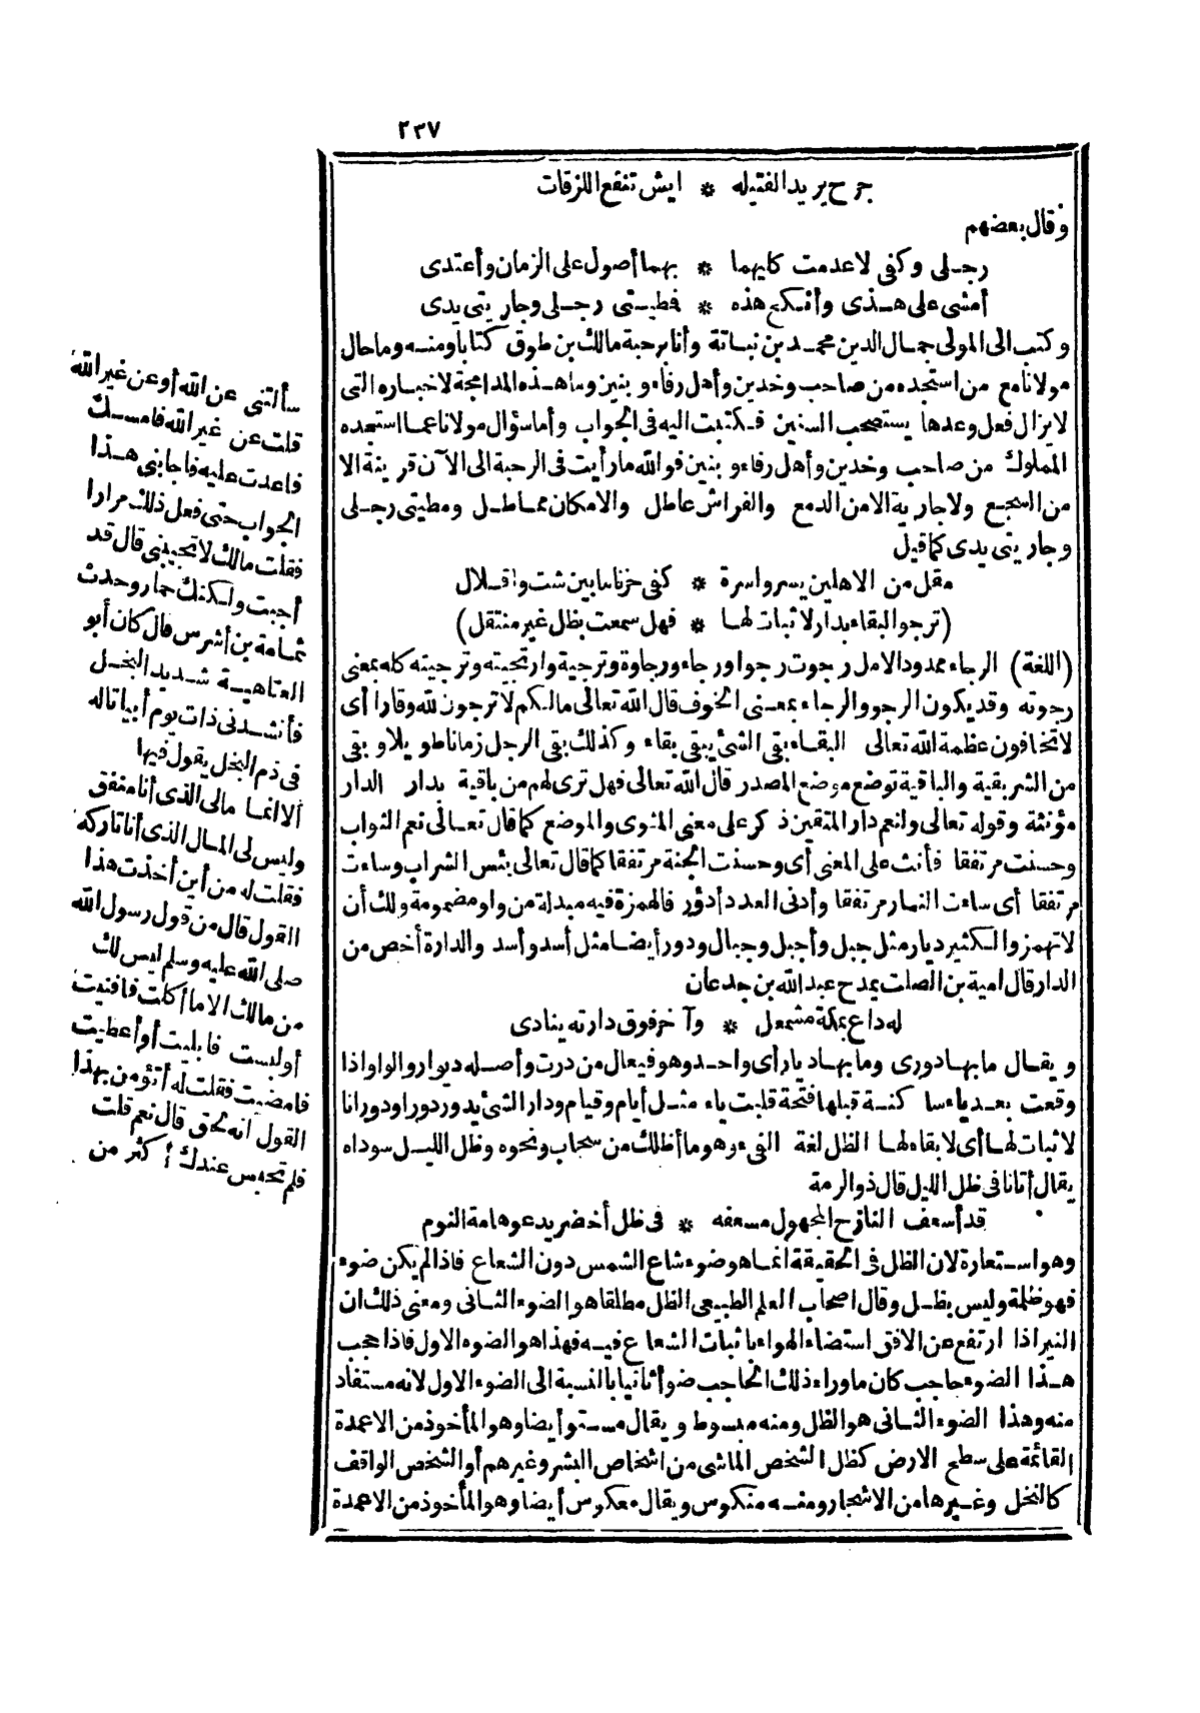 ٢٣٧
جرح يريد الفتيله * ايش تنفع اللزقات
وقال بعضهم
رجلى وكفى لاعدمت كليهما * بهما أصول على الزمان وأعتدى
أمشى على هذى وأنكح هذه * فطيتى رجلى وجاريتى يدى
وكتب الى المولى جمال الدين محمد بن نباتة وأنا برحبة مالك بن طوق كتابا ومنه وما حال
مولانا مع من استجده من صاحب وخدين وأهل رفاء وبنين وما هذه المدامجة لاخباره التى
لايزال فعل وعدها يستصحب السنين فكتبت اليه فى الجواب وأما سؤال مولانا عما استجده
المملوك من صاحب وخدين وأهل رفاء وبنين فوالله ما رأيت فى الرحبة الى الآن قرينة الا
من السجع ولا جارية الا من الدمع والفراش عاطل والامكان مماطل ومطيتى رجلى
وجاريتى يدى كما قيل
مقل من الاهلين يسر واسرة * كفى حزنا ما بين شت واقلال
(ترجو البقاء بدار لاثبات لها * فهل سمعت بظل غير منتقل)
(اللغة) الرجاء ممدود الامل رجوت رجوا ورجاء ورجاوة وترجية وارتجيته وترجيته كله بمعنى
رجوته وقد يكون الرجو والرجاء بمعنى الخوف قال الله تعالى مالكم لا ترجون لله وقارا أى
لا تخافون عظمة الله تعالى البقاء بقى الشئ يبقى بقاء وكذلك بقى الرجل زمانا طويلا وبقى
من الشر بقية والباقية توضع موضع المصدر قال الله تعالى فهل ترى لهم من باقية بدار الدار
مؤنثة وقوله تعالى ولنعم دار المتقين ذكر على معنى المثوى والموضع كما قال تعالى نعم الثواب
وحسنت مرتفقا فأنث على المعنى أى وحسنت الجنة مرتفقا كما قال تعالى بئس الشراب وساءت
مرتفقا أى ساءت النار مرتفقا وأدنى العدد أدؤر فالهمزة فيه مبدلة من واو مضمومة ولك أن
لاتهمز والكثير ديار مثل جبل وأجبل وجبال ودور أيضا مثل أسد وأسد والدارة أخص من
الدار قال امية بن الصلت يمدح عبد الله بن جدعان
له داع بمكة مشمعل * وآخر فوق دارته ينادى
ويقال ما بها دورى وما بها ديار أى واحد وهو فيعال من درت وأصله ديوار والواو اذا
وقعت بعد ياء ساكنة قبلها فتحة قلبت ياء مثل أيام وقيام ودار الشئ يدور دورا ودورانا
لاثبات لها أى لا بقاء لها الظل لغة الفىء وهو ما أظلك من سحاب ونحوه وظل الليل سوداه
يقال أتانا فى ظل الليل قال ذو الرمة
قد أسعف النازح المجهول مسعفه * فى ظل أخضر يدعو هامة النوم
وهو استعارة لان الظل فى الحقيقة انما هو ضوء شاع الشمس دون الشعاع فاذا لم يكن ضوء
فهو ظلمة وليس بظل وقال اصحاب العلم الطبيعى الظل مطلقا هو الضوء الثانى ومعنى ذلك ان
النير اذا ارتفع عن الافق استضاء الهواء باثبات الشعاع فيه فهذا هو الضوء الاول فاذا حجب
هذا الضوء حاجب كان ما وراء ذلك الحاجب ضوأ ثانيا بالنسبة الى الضوء الاول لانه مستفاد
منه وهذا الضوء الثانى هو الظل ومنه مبسوط ويقال مستو أيضا وهو المأخوذ من الاعمدة
القائمة على سطح الارض كظل الشخص الماشى من اشخاص البشر وغيرهم أو الشخص الواقف
كالنخل وغيرها من الاشجار ومنه منكوس ويقال معكوس أيضا وهو المأخوذ من الاعمدة
سألتنى عن الله أو عن غير الله
قلت عن غير الله فامسك
فاعدت عليه فاجابنى هذا
الجواب حتى فعل ذلك مرارا
فقلت مالك لا تجيبنى قال قد
أجبت ولكنك حمار وحدث
ثمامة بن أشرس قال كان أبو
العتاهية شديد البخل
فأنشدنى ذات يوم أبياتا له
فى ذم البخل يقول فيها
ألا انما مالى الذى أنا منفق
وليس لى المال الذى أنا تاركه
فقلت له من أين أخذت هذا
القول قال من قول رسول الله
صلى الله عليه وسلم ليس لك
من مالك الا ما أكلت فافنيت
أو لبست فابليت أو أعطيت
فامضيت فقلت له أتؤمن بهذا
القول انه لحق قال نعم قلت
فلم تحبس عندك أكثر من